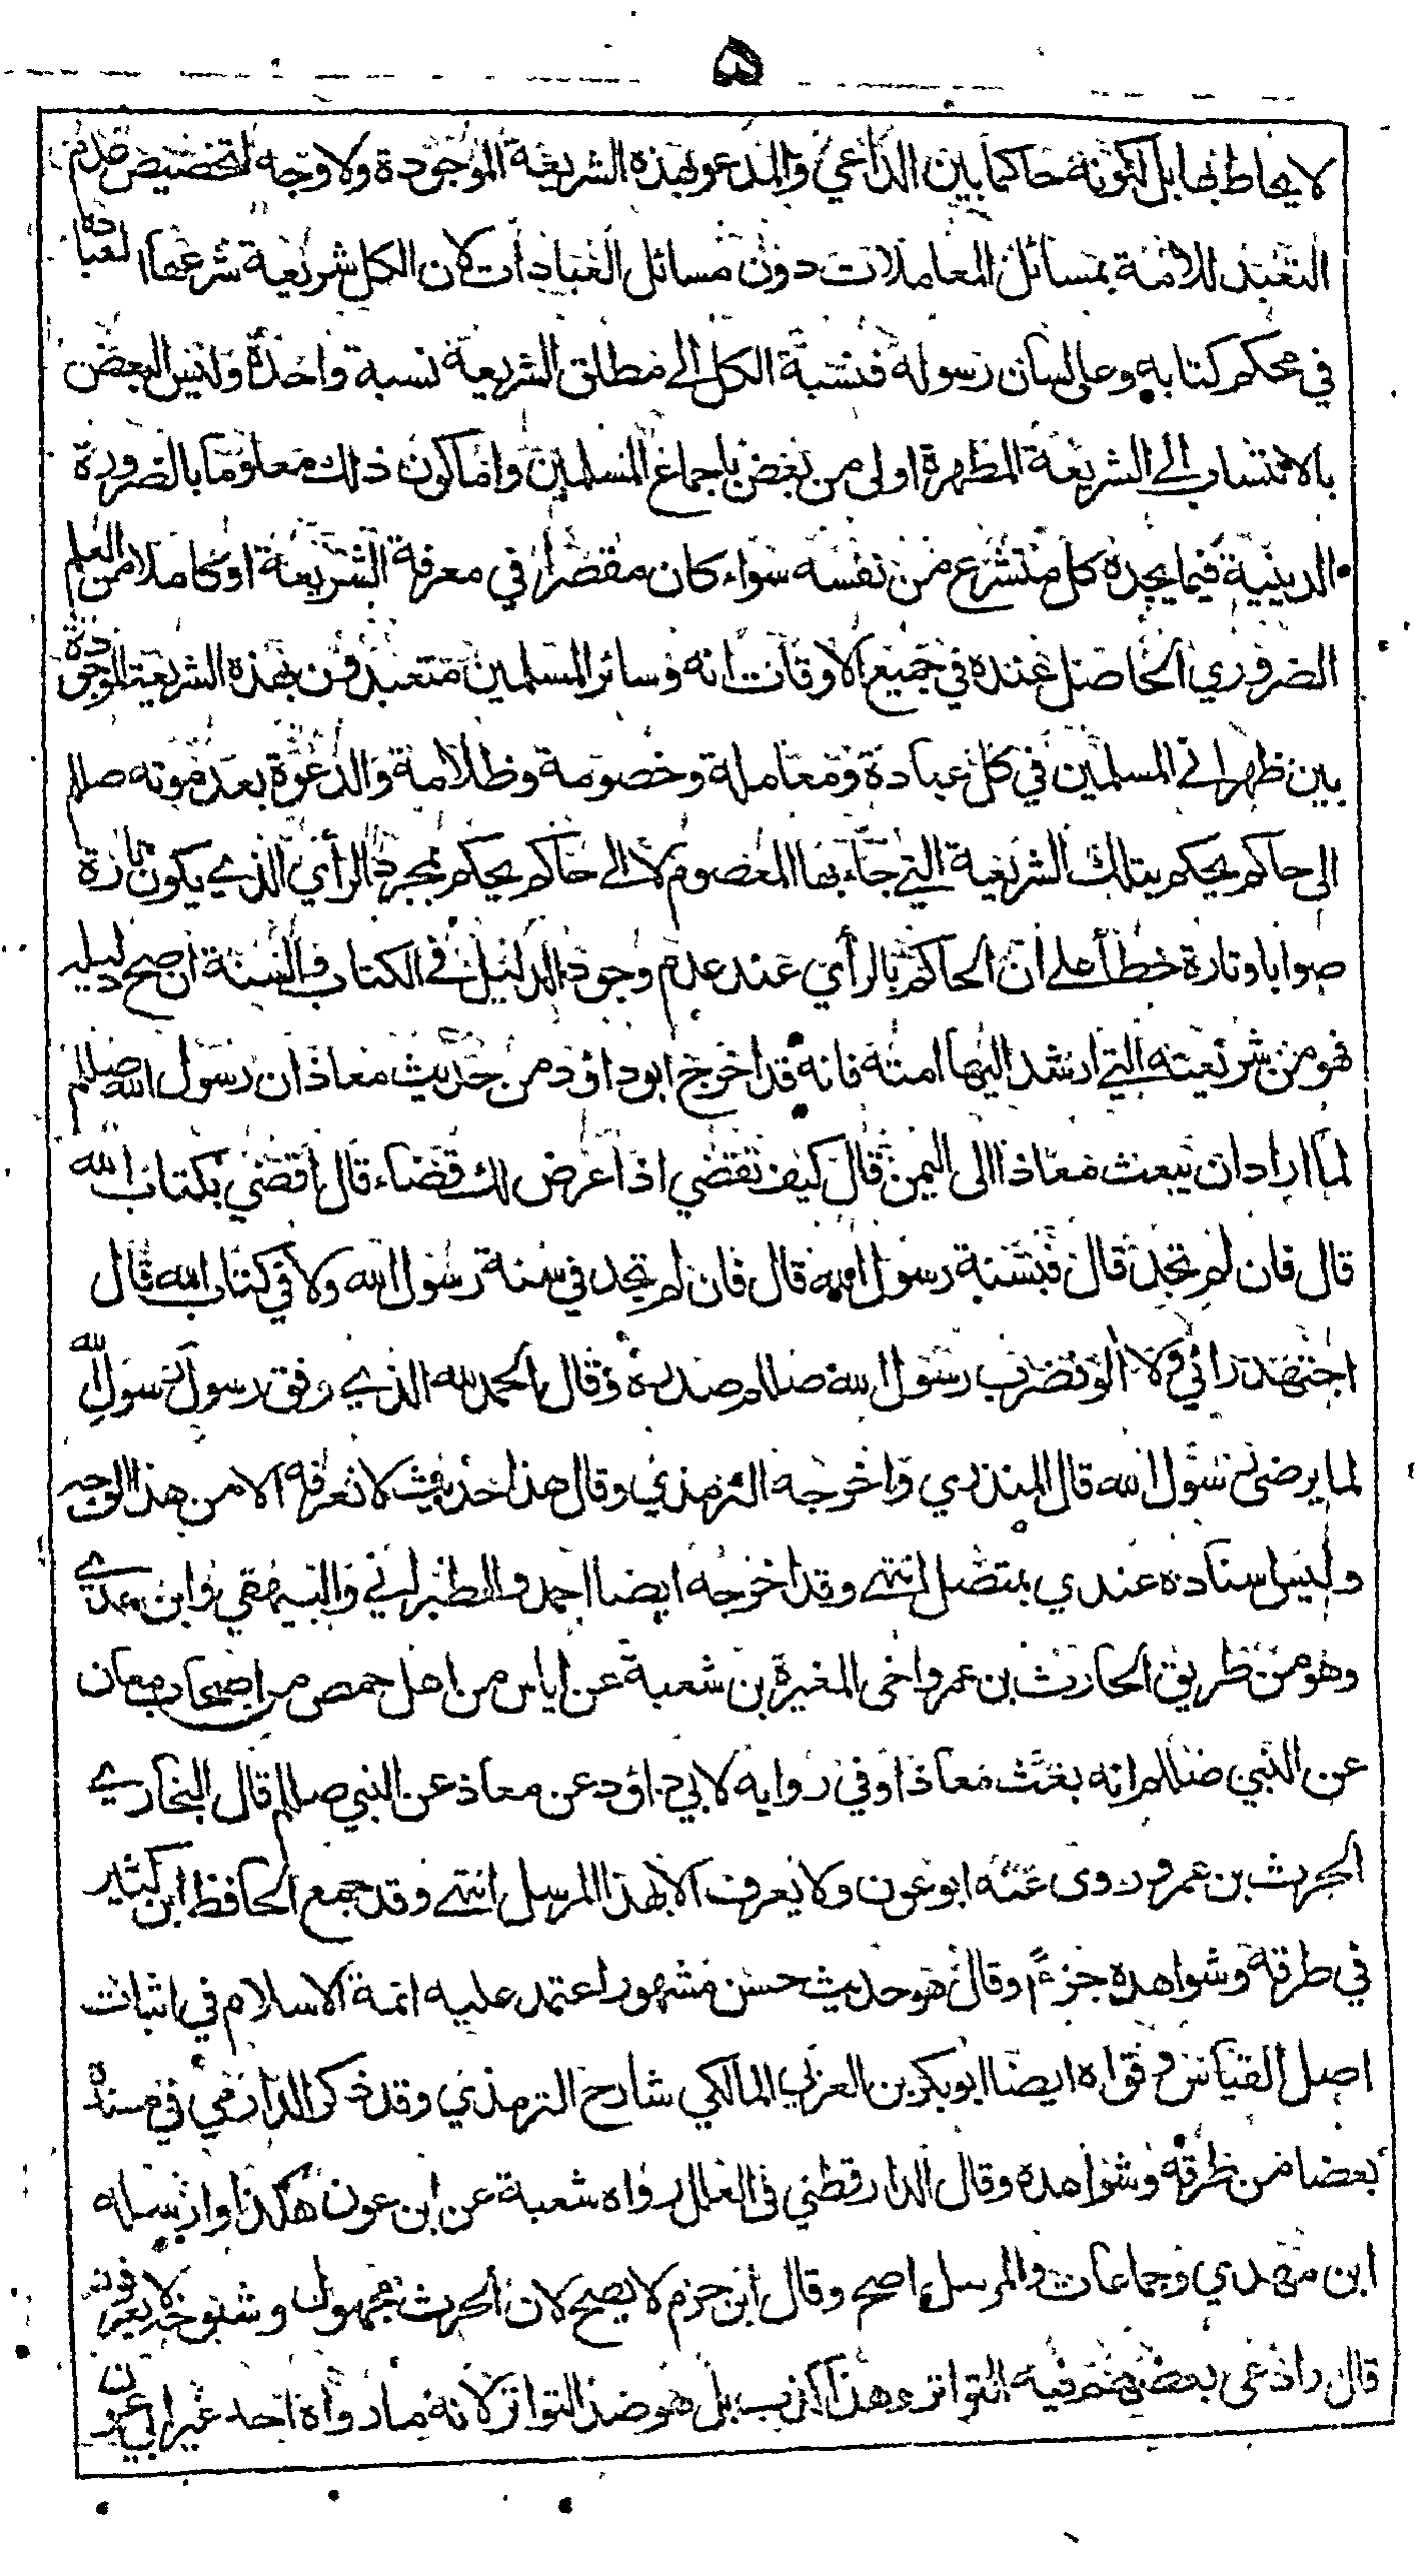 ٥
لا يحاط بها بل لكونه حاكما بين الداعي والمدعو بهذه الشريعة الموجودة ولا وجه لتخصيص عدم
التعبد للامة بمسائل المعاملات دون مسائل العبادات لان الكل شريعة شرعها لعباده
في محكم كتابه وعلى لسان رسوله فنسبة الكل الى مطلق الشريعة نسبة واحدة وليس البعض
بالانتساب الى الشريعة المطهرة اولى من بعض باجماع المسلمين واما كون ذلك معلوما بالضرورة
الدينية فيما يجده كل متشرع من نفسه سواء كان مقصرا في معرفة الشريعة او كاملا من العلم
الضروري الحاصل عنده في جميع الاوقات انه وسائر المسلمين متعبدون بهذه الشريعة الموجودة
بين ظهراني المسلمين في كل عبادة ومعاملة وخصومة وظلامة والدعوة بعد موته صللم
الى حاكم يحكم بتلك الشريعة التي جاء بها المعصوم لا الى حاكم يحكم بمجرد الرأي الذي يكون تارة
صوابا وتارة خطأ على ان الحاكم بالرأي عند عدم وجود الدليل في الكتاب والسنة ان صح دليله
فهو من شريعته التي ارشد اليها امته فانه قد اخرج ابو داؤد من حديث معاذ ان رسول الله صللم
لما اراد ان يبعث معاذا الى اليمن قال كيف تقضي اذا عرض لك قضاء قال اقضي بكتاب الله
قال فان لم تجد قال فبسنة رسول الله قال فان لم تجد في سنة رسول الله ولا في كتاب الله قال
اجتهد رائي ولا الو فضرب رسول الله صللم صدره وقال الحمد لله الذي وفق رسول رسول الله
لما يرضى رسول الله قال المنذري واخرجه الترمذي وقال هذا حديث لا نعرفه الا من هذا الوجه
وليس اسناده عندي بمتصل انتهى وقد اخرجه ايضا احمد والطبراني والبيهقي وابن عدي
وهو من طريق الحارث بن عمرو اخى المغيرة بن شعبة عن اياس من اهل حمص من اصحاب معاذ
عن النبي صللم انه بعث معاذا وفي رواية لابي داؤد عن معاذ عن النبي صللم قال البخاري
الحرث بن عمرو روى عنه ابو عون ولا يعرف الا بهذا المرسل انتهى وقد جمع الحافظ ابن كثير
في طرقه وشواهده جزءً وقال هو حديث حسن مشهور اعتمد عليه ائمة الاسلام في اثبات
اصل القياس وقواه ايضا ابو بكر بن العربي المالكي شارح الترمذي وقد ذكر الدارمي في مسنده
بعضا من طرقه وشواهده وقال الدارقطني في العلل رواه شعبة عن ابن عون هكذا وارسله
ابن مهدي وجماعات والمرسل اصح وقال ابن حزم لا يصح لان الحرث مجهول وشيوخه لا يعرفون
قال وادعى بعضهم فيه التواتر وهذا كذب بل هو ضد التواتر لانه ما رواه احد غير ابي عون